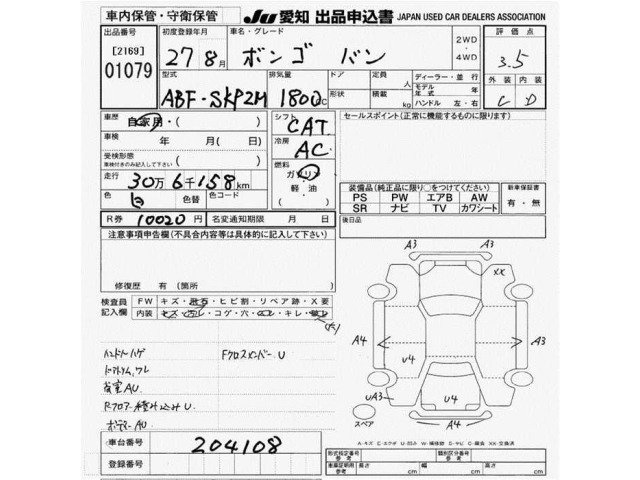 車内保管・守衛保管
JU 愛知 出品申込書 JAPAN USED CAR DEALERS ASSOCIATION
出品番号
[2169]
01079
初度登録年月
27 8月
車名・グレード
ボンゴ バン
2WD
・
4WD
評価点
3.5
外装 内装
C D
型式
ABF-SKP2M
排気量
1800cc
ドア
形状
定員 人
積載 kg
ディーラー・並行
モデル年式 年
ハンドル 左・右
車歴
自家用・( )
シフト
CAT
セールスポイント(正常に機能するものに限ります)
車検
年 月( 日)
冷房
AC
受検形態
車検付きのみ記入して下さい
( )
燃料
ガソリン
軽油
・( )
走行
30万6千158km
色
白
色替
色コード
装備品(純正品に限り○をつけてください)
PS PW エアB AW
SR ナビ TV カワシート
新車保証書
有・無
R券
10020円
名変通知期限 月 日
後日品
注意事項申告欄(不具合内容等は具体的に記入して下さい)
修復歴 有 (箇所 )
検査員
記入欄
FW キズ・飛石・ヒビ割・リペア跡・X要
内装 キズ・汚レ・コゲ・穴・スレ・キレ・
ハンドルハゲ
Fクロスメンバー U
AU
Rフロアー積み込みU
ボデー AU
車台番号
204108
登録番号
A3
XX
A3
A4
A3
U4
UA3
U4
A4
スペア
A-キズ
XX-交換済
形式指定番号
参考
類別区分番号
参考
車庫証明用
参考
長さ cm
幅 cm
高さ cm